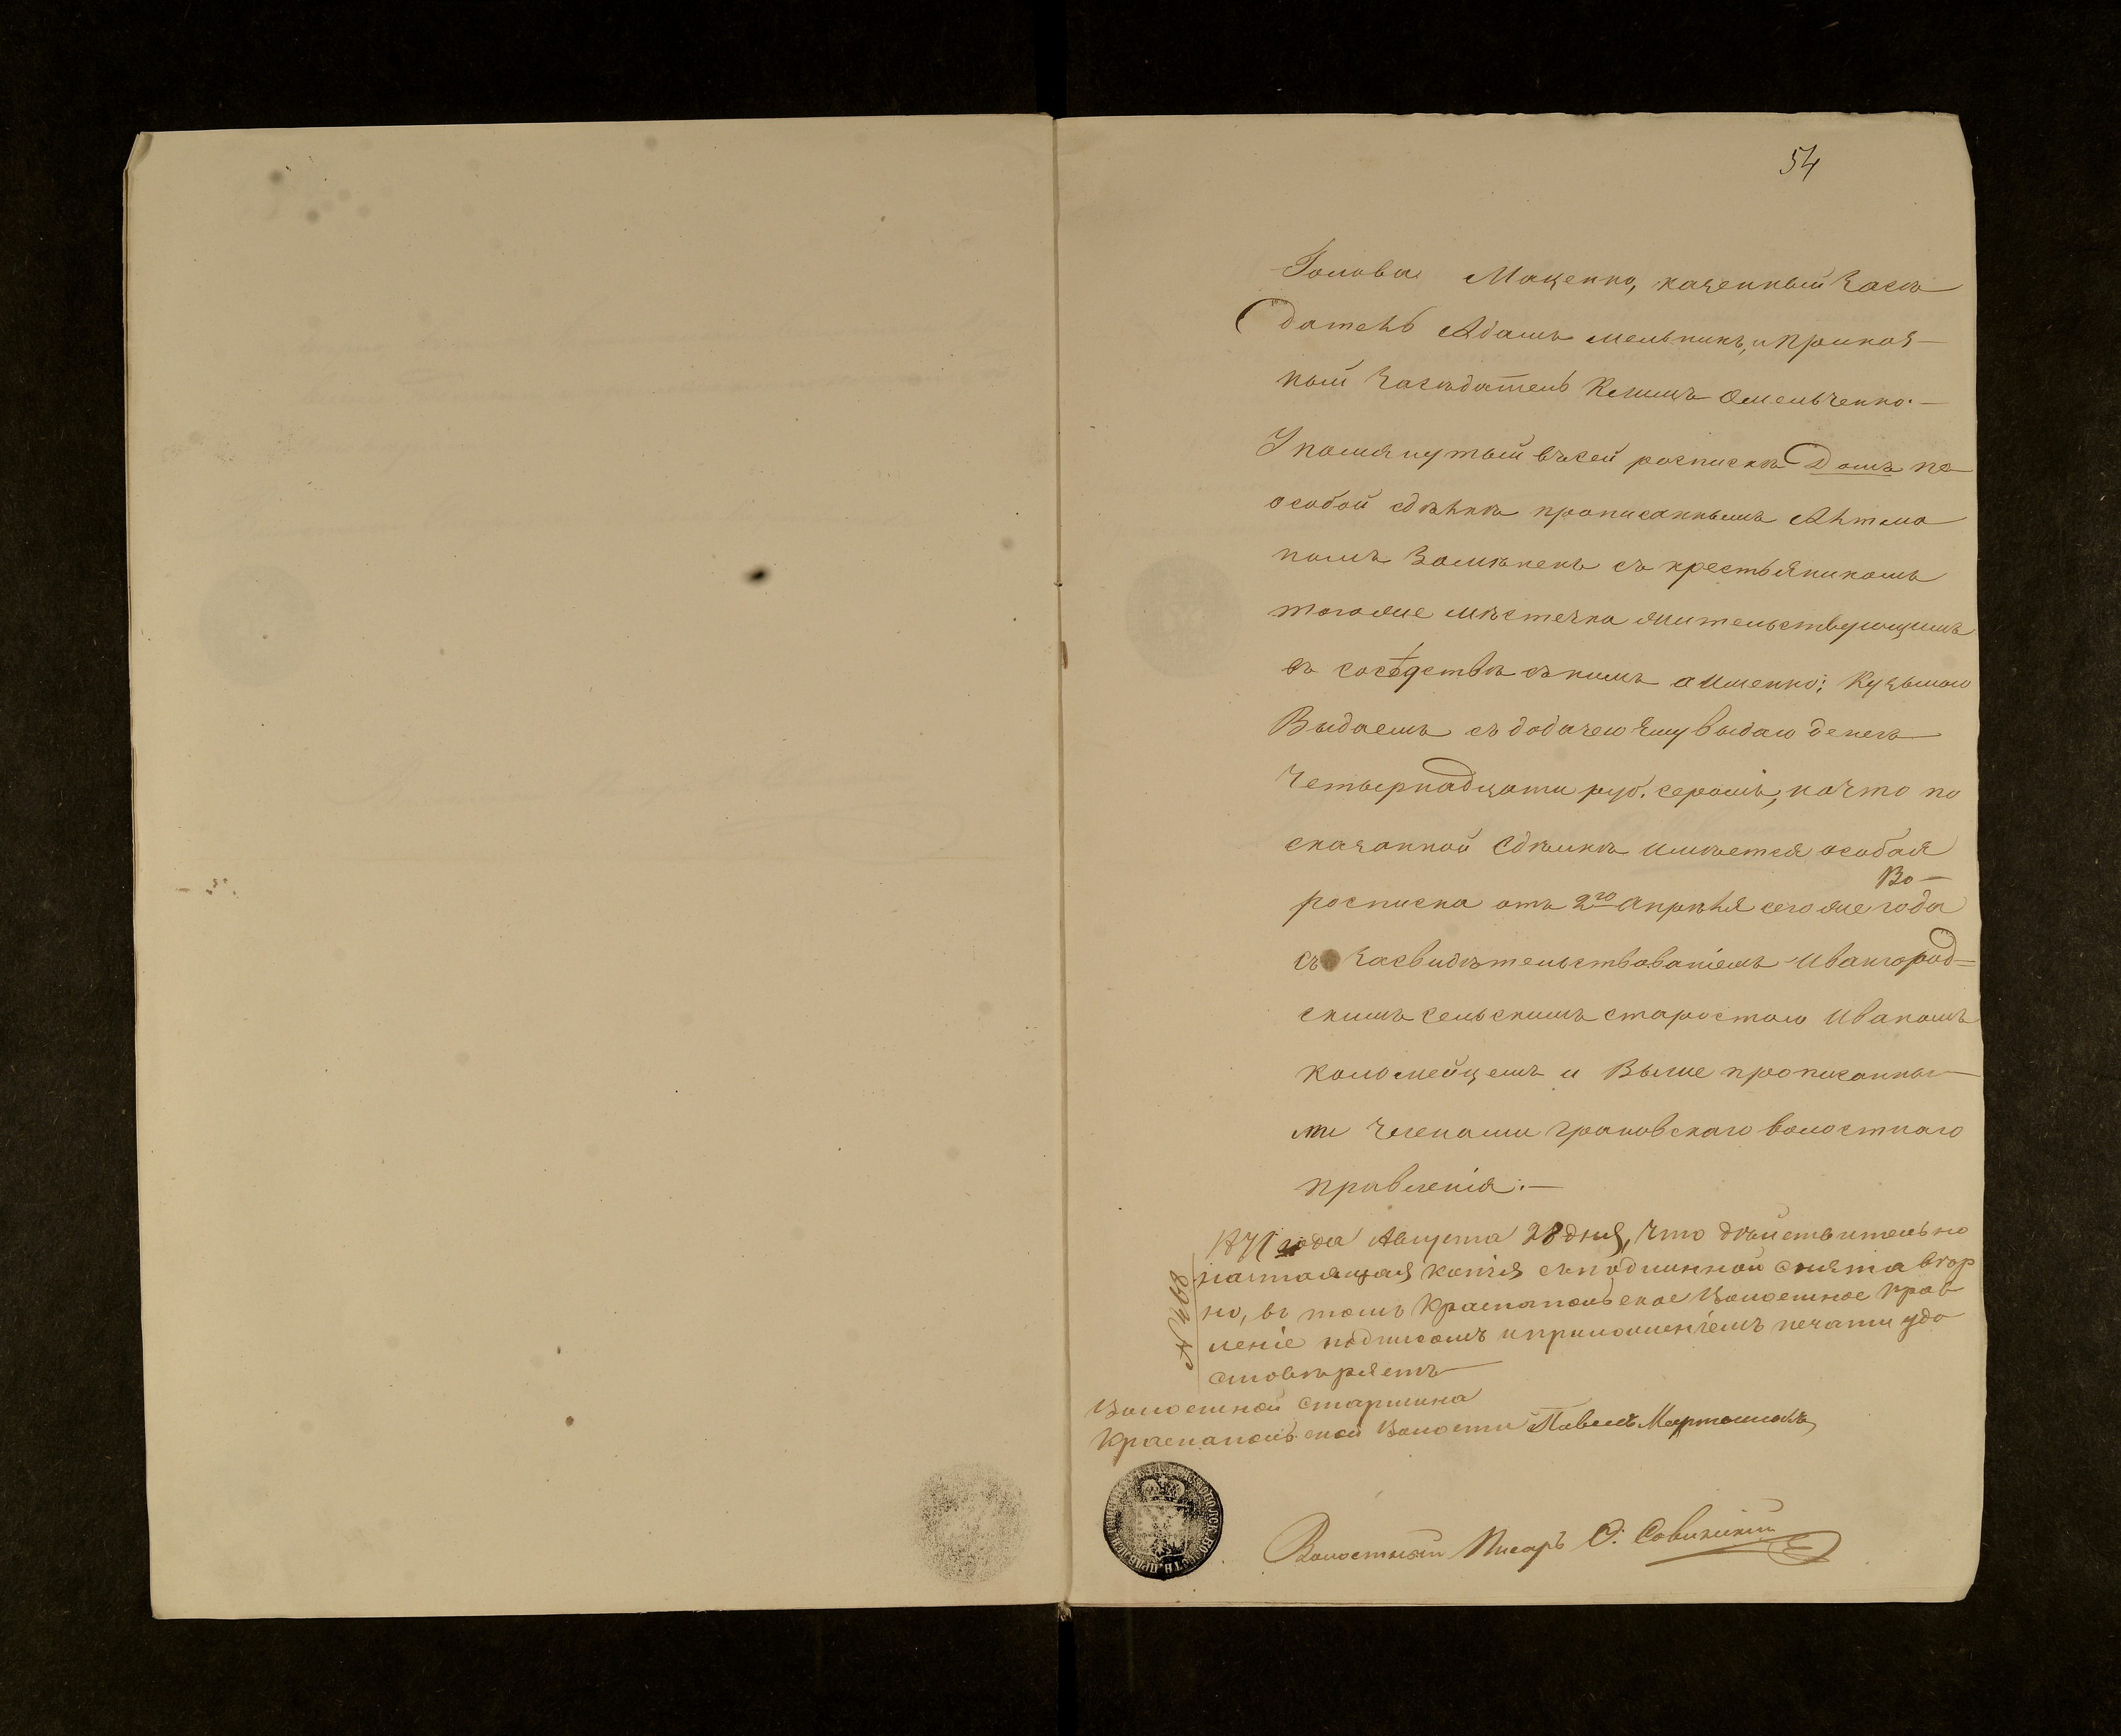 54
Голова Маценко, казенный Засѣ
датель Адамъ Мельникъ, и прика́з
ный Засѣдатель Климъ Омельченко.—
Упомянутый въ сей роспискѣ Домъ по
особой сдѣлкѣ прописаннымъ Антоно
номъ Замѣненъ съ крестьяниномъ
тогоже мѣстечка жительствующимъ
въ сосѣдствѣ съ нимъ а именно: Кузьмою
съ додачею ему денегъ
Четырнадцати руб. серомъ, начто по
сказанной Сдѣлкѣ имѣется особая
Во—
росписка отъ 2го Апрѣля сегоже года
съ Засвидѣтельствованіемъ Ивангород=
скимъ Сельскимъ старостою Иваномъ
Коломейцемъ и Выше прописанны—
ми Членами Грановскаго волостнаго
правленія.—
1871 года Августа 28 дня, Что дѣйствительно
настоящая копія съ подлинной снята вѣр
но, въ томъ Краснопольское Волостное Прав
леніе подписомъ и приложеніемъ печати удо
стовѣряетъ
№ 468
Волостной Старшина
Краснопольской Волости Павелъ
Волостный Писарь О. Савицкій